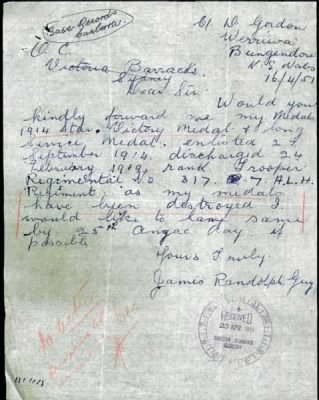 Base Records
Canberra
C/. D. Gordon
Werriwa
Bungendore
N.S. Wales
16/4/51
O. C
Victoria Barracks.
Sydney
Dear Sir.
Would you
kindly forward me my Medals
1914 Star. Victory Medal & long
Service Medal. enlisted 27
September 1914. discharged 24
February 1919. rank Trooper
Regimental No 317. 7 A.L.H.
Regiment as my medals
have been destroyed I
would like to have same
by 25th Angac day if
possible
Yours Truly
James Randolph Guy
RECEIVED
23 APR 1951
EASTERN COMMAND
REGISTRY
No action